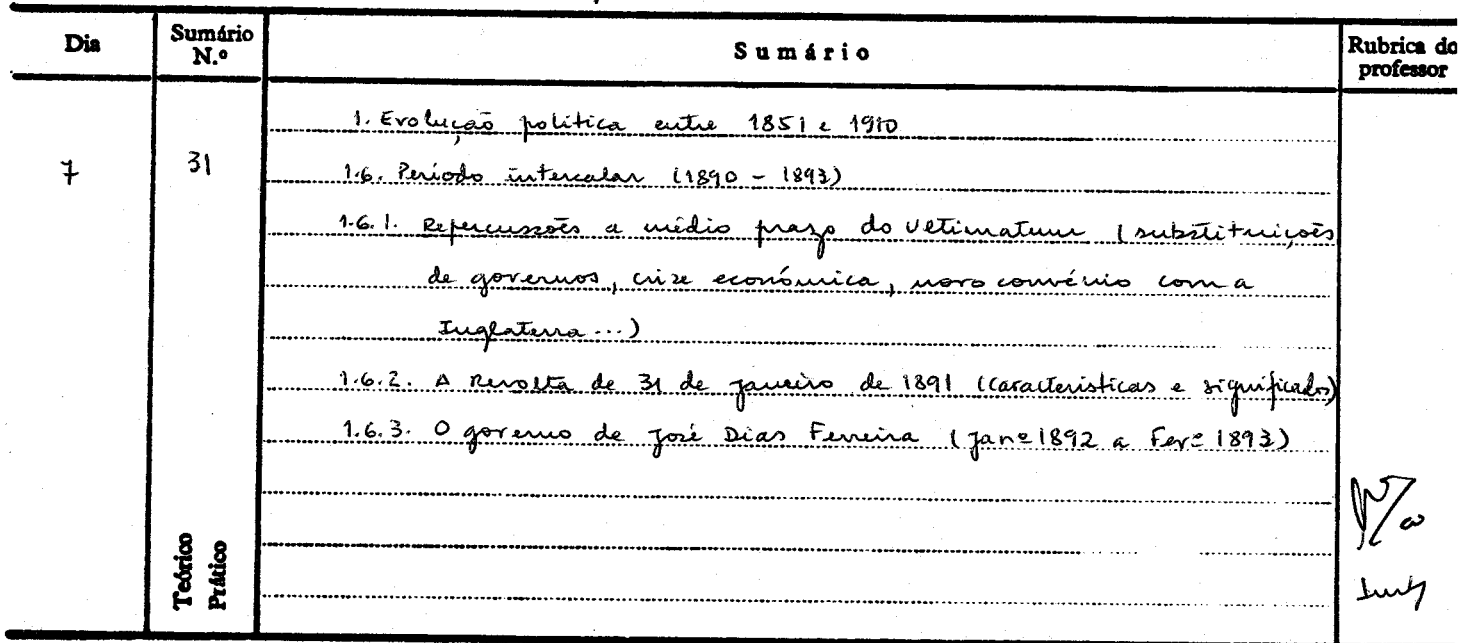 Dia Sumário N.º Sumário Rubrica do professor
1. Evolução política entre 1851 e 1910
7 31 1.6. Período intercalar (1890 - 1893)
1.6.1. Repercussões a médio prazo do Ultimatum (substituições
de governos, crise económica, novo convénio com a
Inglaterra ...)
1.6.2. A Revolta de 31 de Janeiro de 1891 (características e significado)
1.6.3. O governo de José Dias Ferreira (Janº 1892 a Fevº 1893)
Teórico
Prático